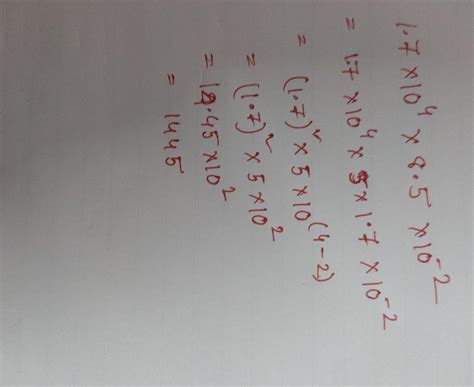 1.7 × 10⁴ × 8.5 × 10⁻²
= 1.7 × 10⁴ × 5 × 1.7 × 10⁻²
= (1.7)² × 5 × 10⁽⁴⁻²⁾
= (1.7)² × 5 × 10²
= 14.45 × 10²
= 1445